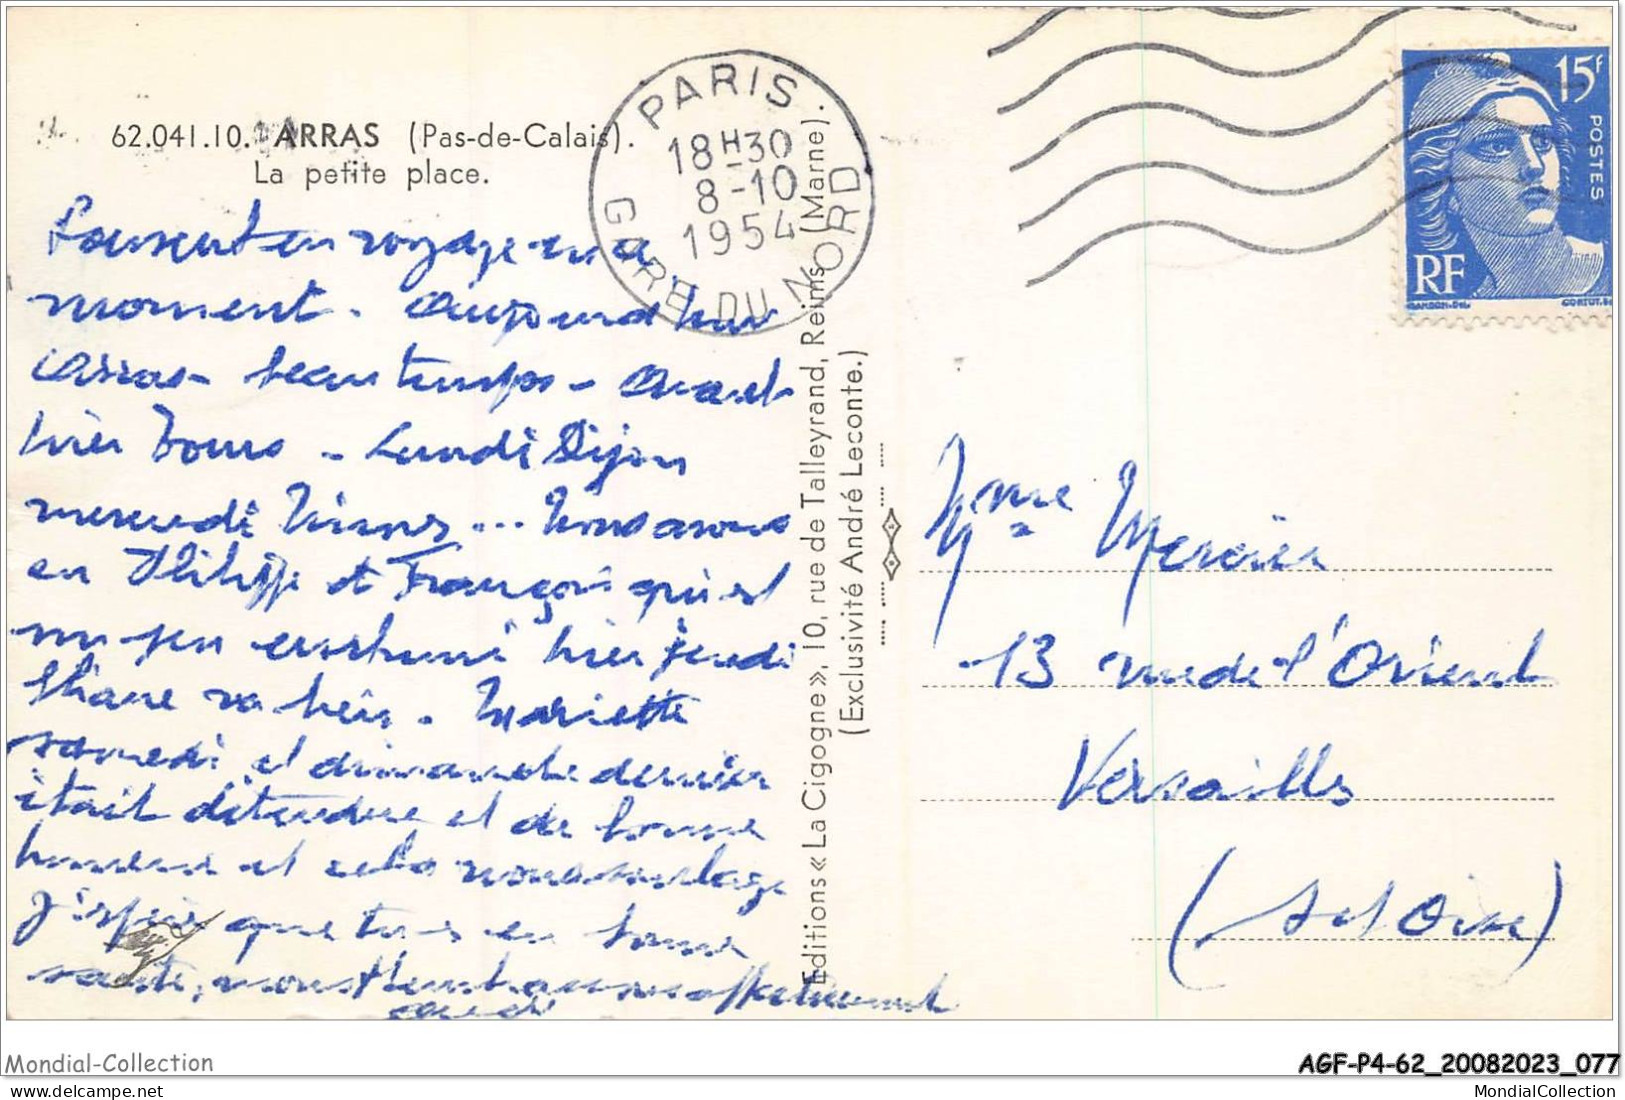 62.041.10. ARRAS (Pas-de-Calais).
La petite place.
PARIS
18H30
8-10
1954
GARE DU NORD
15F
POSTES
RF
GANDON.DEL
CORTOT.
Souvent en voyage en ce
moment. Aujourd'hui
Arras - beau temps - Avant
hier Tours - Lundi Dijon
mercredi Nimes ... Nous avons
eu Philippe et François qui est
un peu enrhumé hier jeudi
va bien. Mariette
samedi et dimanche dernier
était détendue et de bonne
humeur et cela nous soulage
J'espère que tu es en bonne
santé, nous t'embrassons affectueusement
André
Editions « La Cigogne », 10, rue de Talleyrand, Reims (Marne).
(Exclusivité André Leconte.)
Mme Mercier
13 rue de l'Orient
Versailles
(S et Oise)
Mondial-Collection
AGF-P4-62_20082023_077
MondialCollection